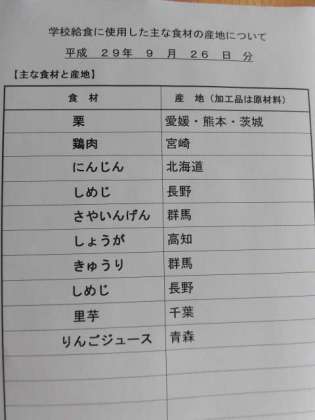 学校給食に使用した主な食材の産地について
平成 29年 9 月 26 日 分
【主な食材と産地】
食 材 産 地（加工品は原材料）
栗 愛媛・熊本・茨城
鶏肉 宮崎
にんじん 北海道
しめじ 長野
さやいんげん 群馬
しょうが 高知
きゅうり 群馬
しめじ 長野
里芋 千葉
りんごジュース 青森